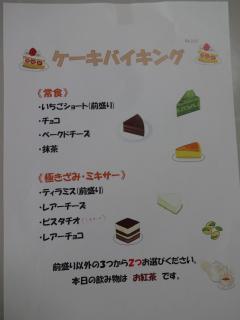 ケーキバイキング
《常食》
・いちごショート(前盛り)
・チョコ
・ベークドチーズ
・抹茶
《極きざみ・ミキサー》
・ティラミス(前盛り)
・レアーチーズ
・ピスタチオ
・レアーチョコ
前盛り以外の3つから2つお選びください。
本日の飲み物は お紅茶 です。